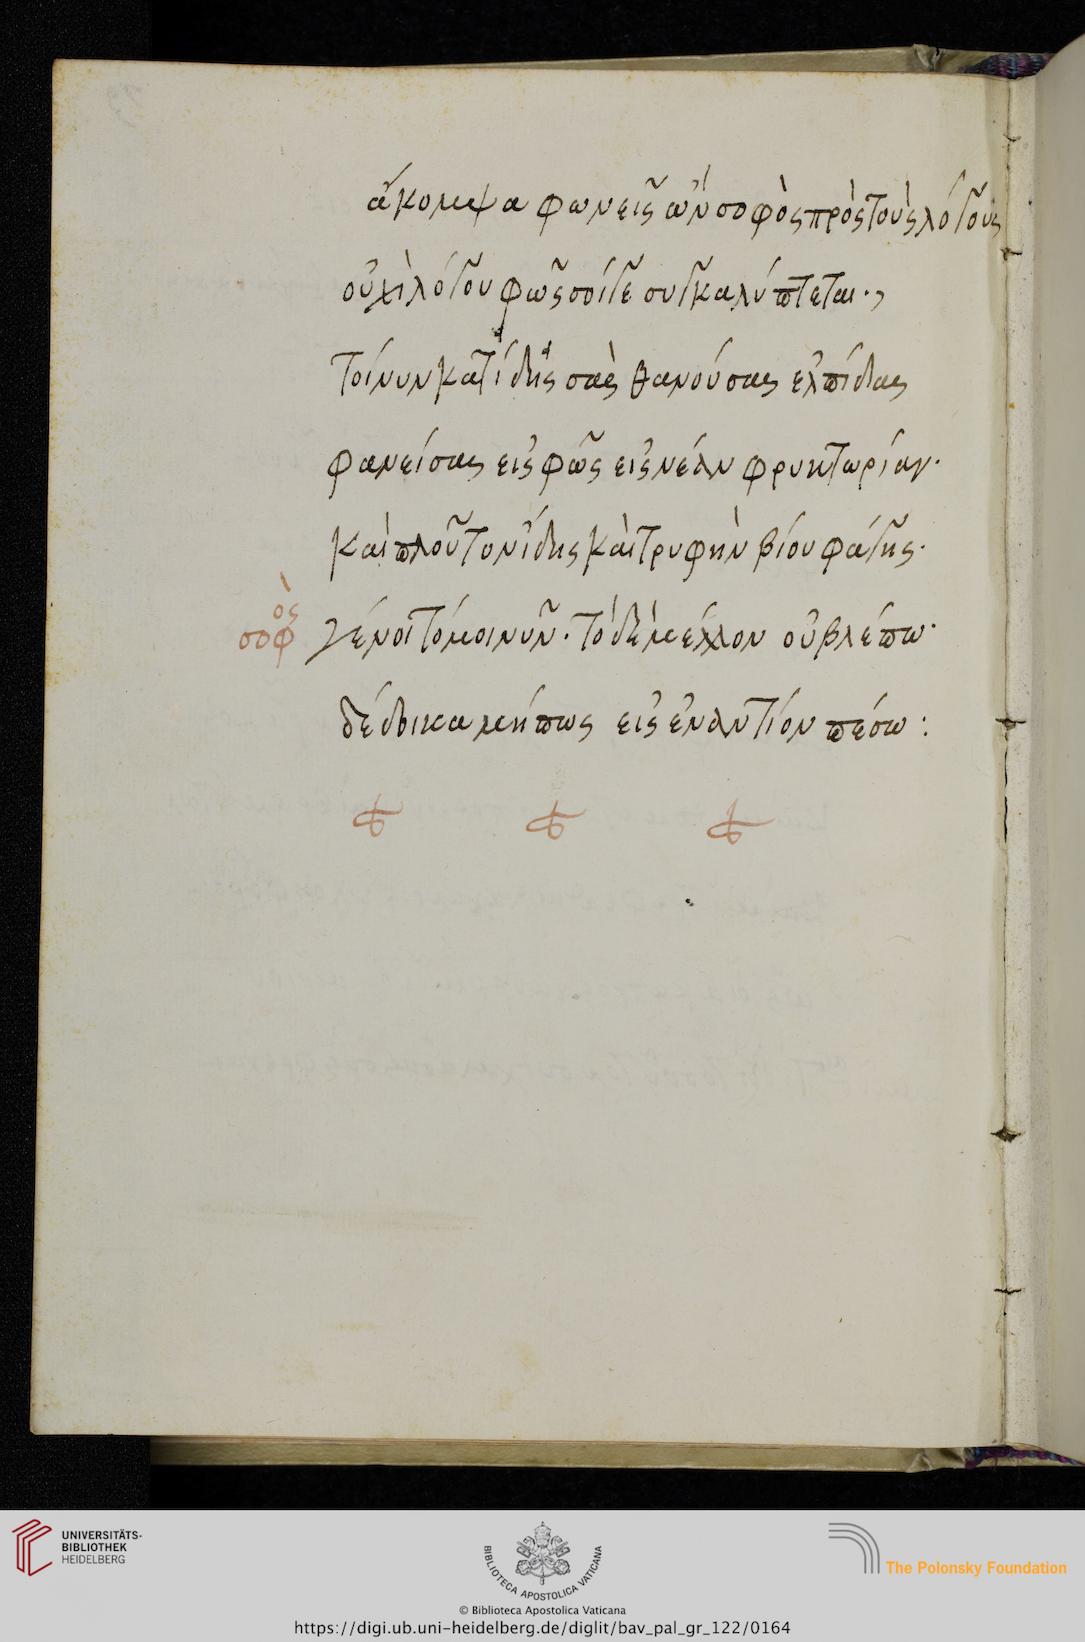 ἄκομψα φωνεῖς ὢν σοφὸς πρὸς τοὺς λόγους
οὐχὶ λόγου φῶς σοί γε συγκαλύπτεται·,
τοίνυν κατίδης σὰς θανούσας ἐλπίδας
φανείσας εἰς φῶς εἰς νέαν φρυκτωρίαν·
καὶ πλοῦτον ἴδης καὶ τρυφὴν βίου φάγης·
σοφὸς γένοιτό μοι νῦν· τὸ δὲ μέλλον οὐ βλέπω·
δέδοικα μήπως εἰς ἐναντίον πέσω :
UNIVERSITÄTS-
BIBLIOTHEK
HEIDELBERG
BIBLIOTECA APOSTOLICA VATICANA
The Polonsky Foundation
© Biblioteca Apostolica Vaticana
https://digi.ub.uni-heidelberg.de/diglit/bav_pal_gr_122/0164